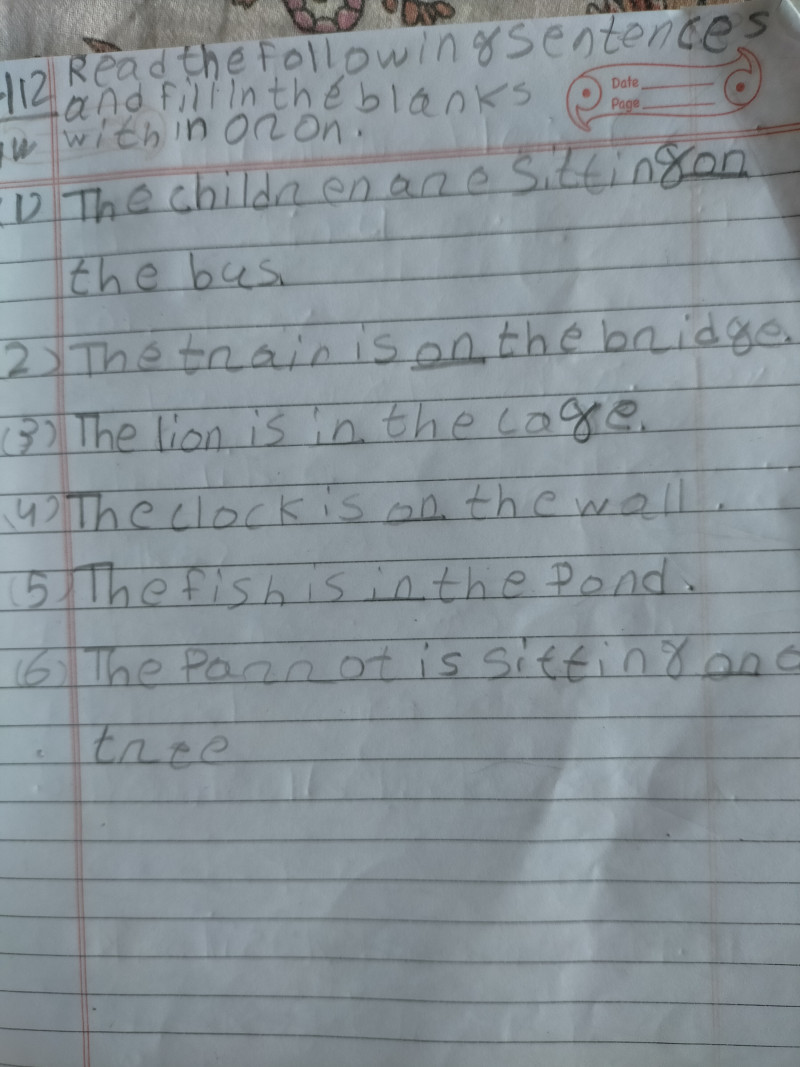 112 Read the following sentences
and fill in the blanks
with in or on.
Date
Page
(1) The children are sitting on
the bus.
2) The train is on the bridge.
(3) The lion is in the cage.
(4) The clock is on the wall.
(5) The fish is in the Pond.
(6) The Parrot is sitting on a
tree